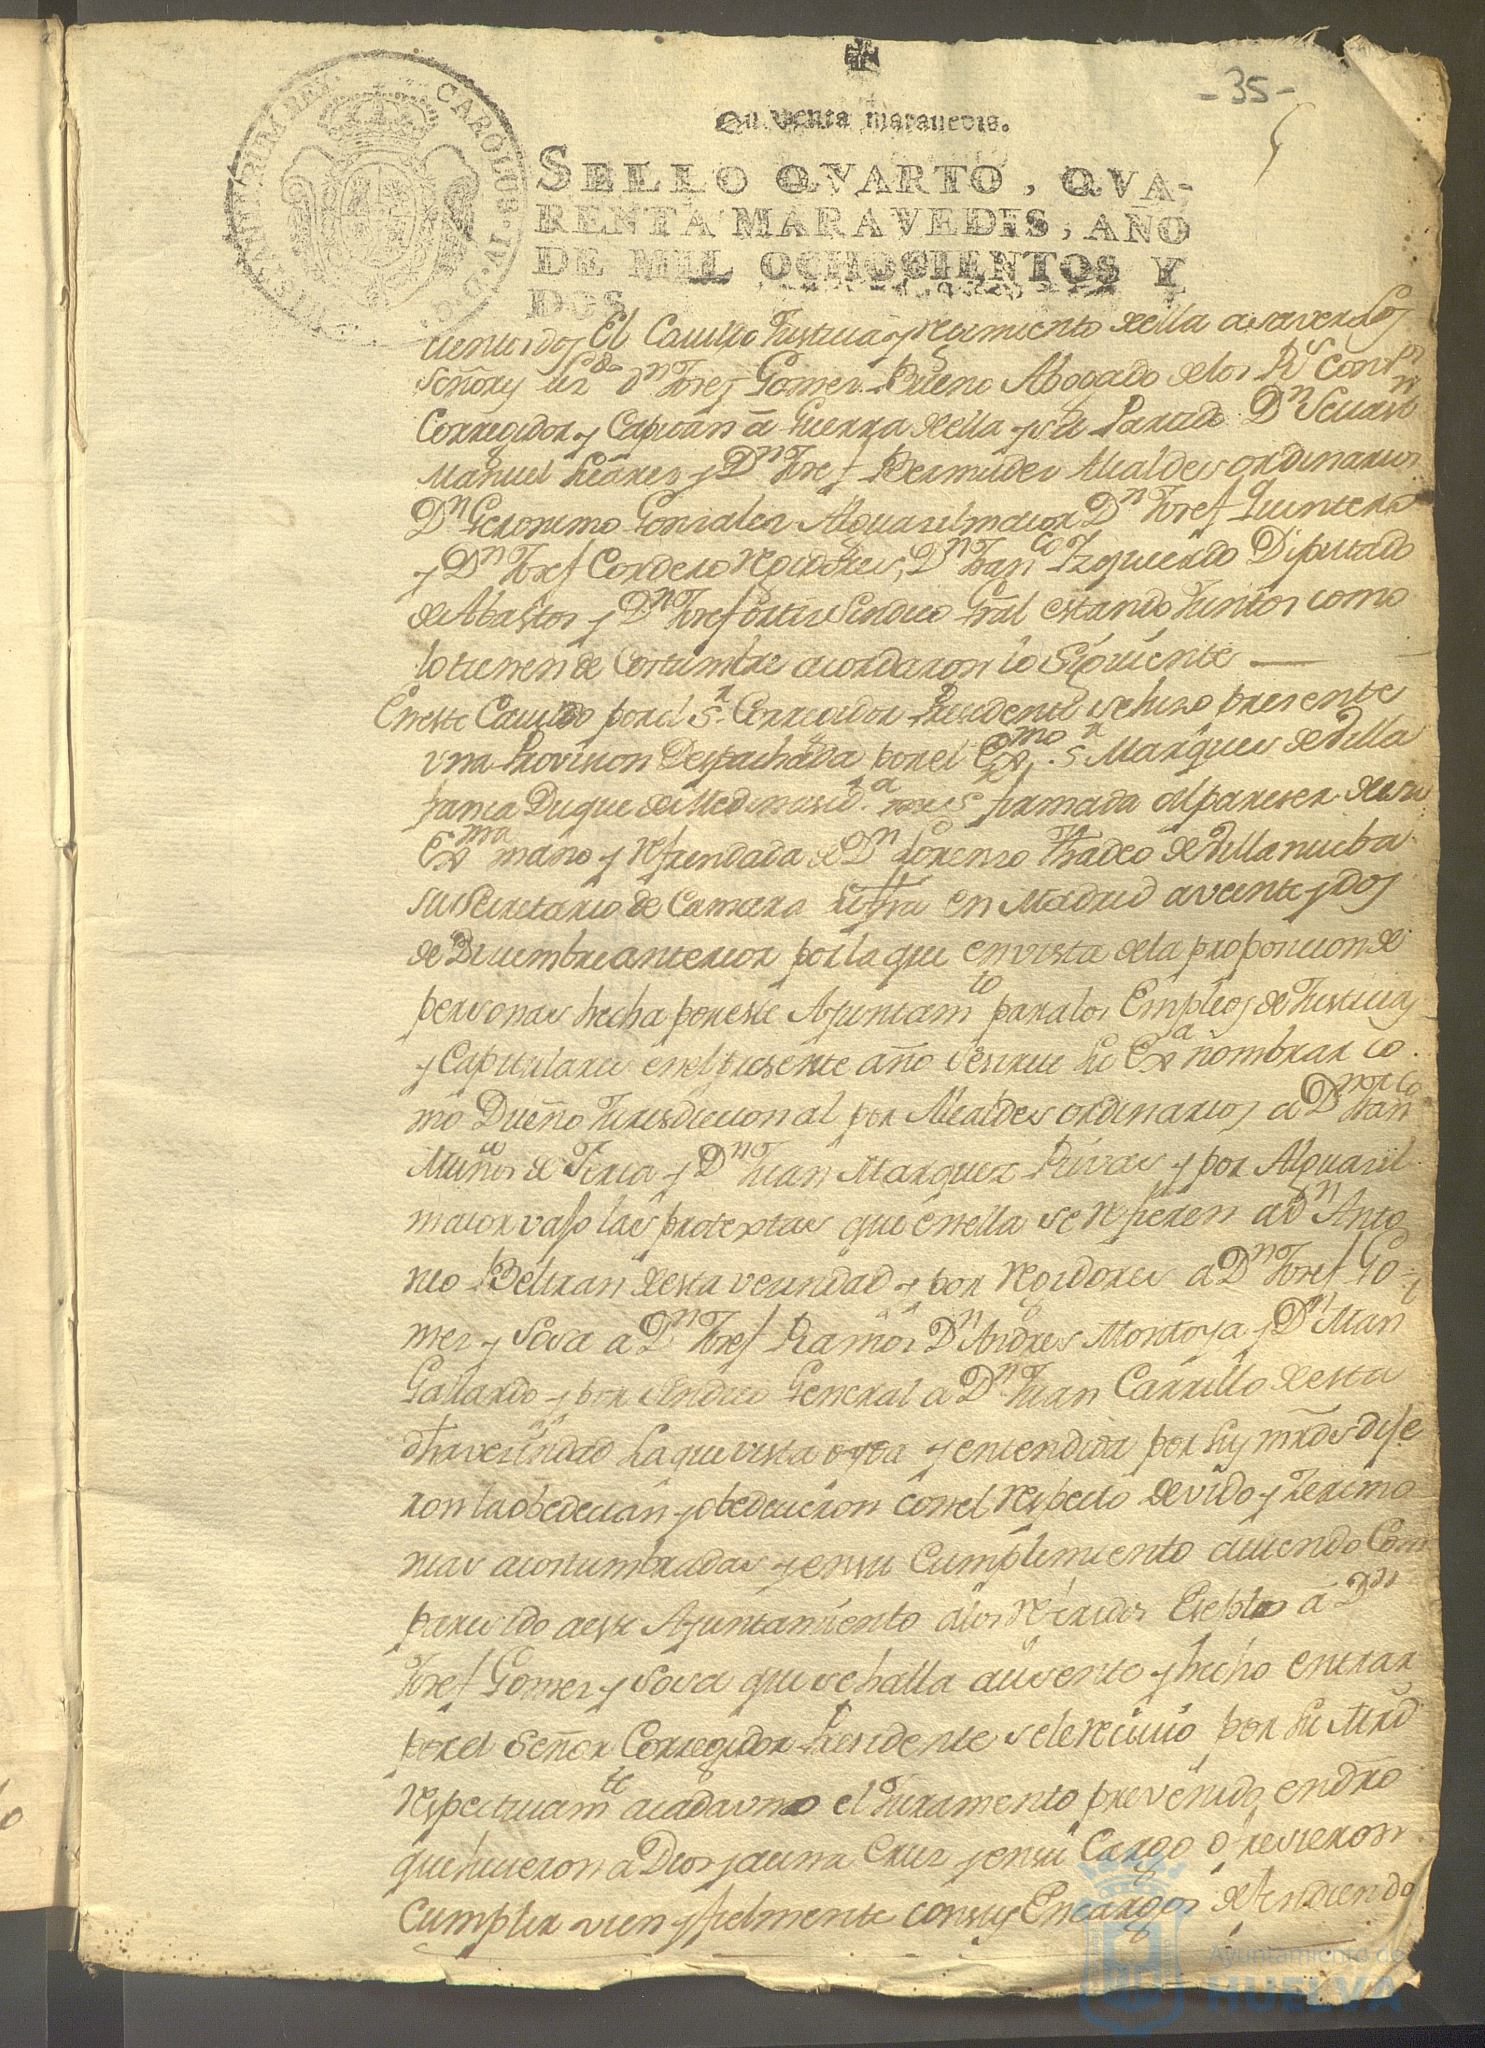 -35-
Quarenta marauedis.
SELLO QVARTO, QVA-
RENTA MARAVEDIS, AÑO
DE MIL OCHOCIENTOS Y
DOS
CAROLUS. IV. D. G. HISPANIARUM REX
cientos idos El Cavildo Justicia y regimiento della asaver Los
Señores Lizdo dn Josef Gomez Bueno Abogado delos Rs Con
Corregidor y Capitan â Guerra della y su Partido Dn
Manuel y Dn Josef Bermudez Alcaldes ordinarios
Dn Geronimo Gonzalez Alguasil maior Dn Josef Quintero
y Dn Josef Cordero regidores, Dn Franco Izquierdo Diputado
de Abastos y Dn Josef Ortiz Sindico Gral estando juntos como
lo tienen de Costumbre acordaron lo Siguiente
Eneste Cavildo porel Sr Corregidor Presidente sehiso presente
una Provision Despachada por el Exmo Sr Marques de Villa
franca Duque de Medinasida firmada alpareser desu
Exma mano y refrendada de Dn Lorenzo Thadeo de Villanueba
su Secretario de Camara su fha en Madrid a veinte y dos
de Diciembre anterior por la que en vista dela proposicion de
personas hecha poreste Ayuntamto para los Empleos de Justicia
y Capitulares enel presente año sesirve Su Exa nombrar co
mo Dueño Jurisdiccional por Alcaldes ordinarios a Dn Franco
Muños de Feria y Dn Juan Marquez Rivas y por Alguasil
maior vajo las protextas que enella se refieren a Dn Anto
nio Beltran desta vecindad y por regidores a Dn Josef Go
mez y Sosa a Dn Josef Ramos Dn Andres Montoya y Dn Man
Gallardo y por Sindico General a Dn Juan Carrillo desta
dha vecindad La que vista oyda y entendida por Sus mrds dije
ron la obedecian y obedecieron conel respecto devido y zeremo
nias acostumbradas y ensu Cumplimiento aviendo Com
parecido aeste Ayuntamiento alos referidos Esepto â Dn
Josef Gomez y Sosa que se halla ausente y hecho entrar
porel Señor Corregidor Presidente sele recivio por Su Mrd
respectivamte acadauno el Juramento prevenido endro
que hicieron a Dios y auna Cruz y ensu Cargo ofresieron
Cumplir vien y fielmente consus Encargos defendiendo
Ayuntamiento de
HUELVA